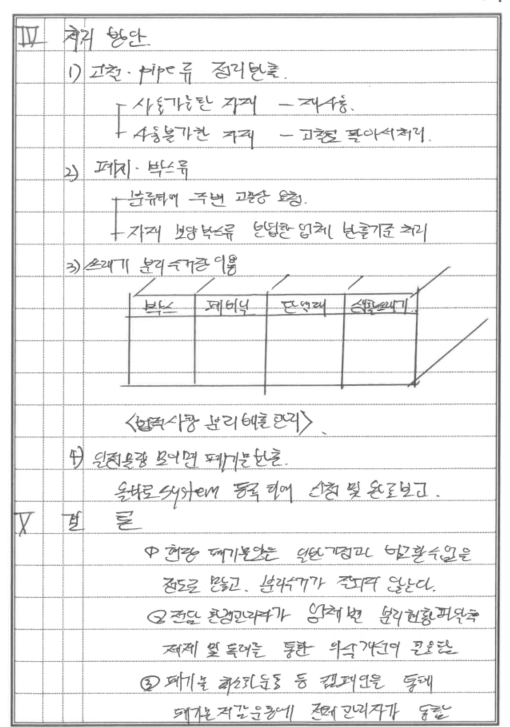 IV 처리 방안.
1) 고철·pipe류 정리반출.
사용가능한 자재 - 재사용.
사용불가한 자재 - 고철로 팔아서처리.
2) 폐지·박스류
분류하여 주변 고물상 요청.
자재 포장박스류 반입한 업체 반출기준 처리
3) 쓰레기 분리수거함 이용
박스 폐비닐 단열재 생활쓰레기
<협력사항 분리배출관리>
4) 일정물량 모이면 폐기물반출.
올바로 system 등록하여 신청 및 완료보고.
V 결론
① 현장 폐기물양은 일반가정과 비교할수없을
정도로 많고, 분리수거가 잘되지 않는다.
② 전담 환경관리자가 업체별 분리현황파악후
제재 및 독려를 통한 의식개선이 필요함
③ 폐기물 최소화운동 등 캠페인을 통해
폐기물저감운동에 전체관리자가